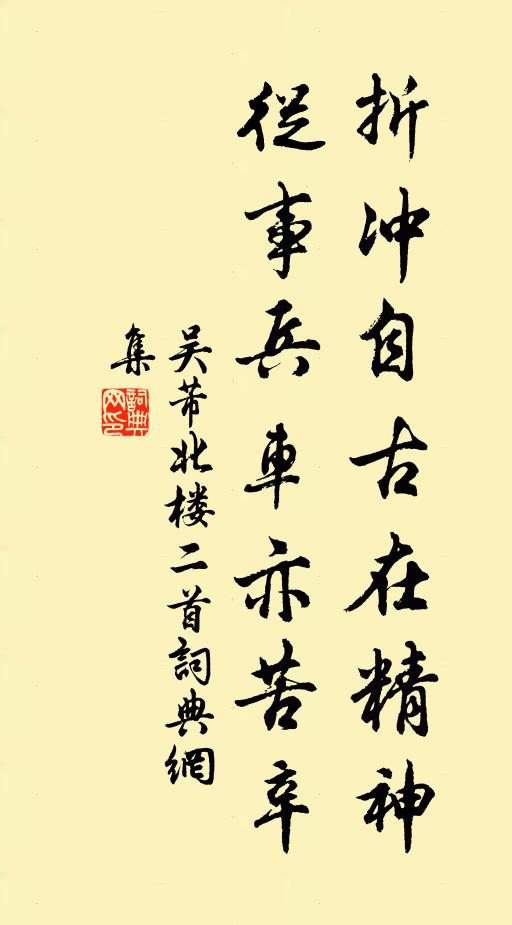 折冲自古在精神
從事兵車亦苦辛
吴芾北楼二首詞典網
集
詞典
网印